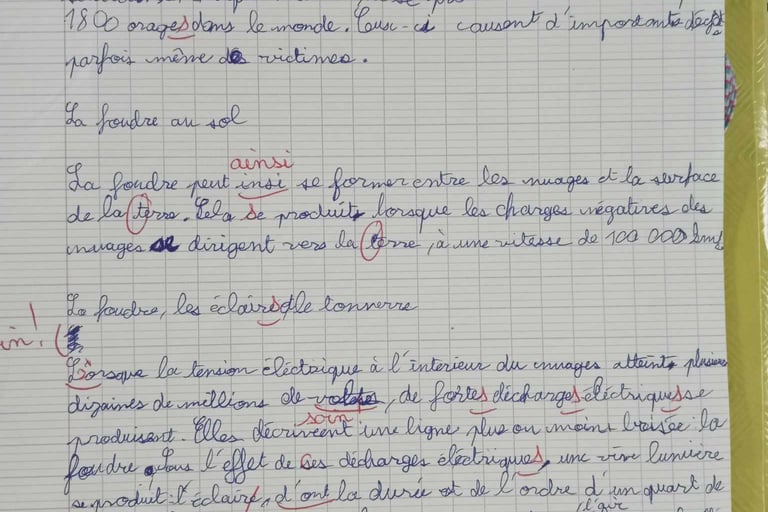 1800 orages dans le monde. Ceux-ci causent d'importants
parfois même des victimes.
La foudre au sol
ainsi
La foudre peut insi se former entre les nuages et la surface
de la terre. Cela se produit lorsque les charges négatives des
nuages se dirigent vers la terre, à une vitesse de 100 000
La foudre, les éclairs et le tonnerre
in!
Lorsque la tension éléctrique à l'interieur du nuages atteint plusieurs
dizaines de millions de volts, de fortes décharges éléctriques se
soin
produisent. Elles décrivent une ligne plus ou moins brisée : la
foudre. Sous l'effet de ses décharges éléctriques, une vive lumière
se produit : l'éclair, d'ont la durée est de l'ordre d'un quart de
l'air